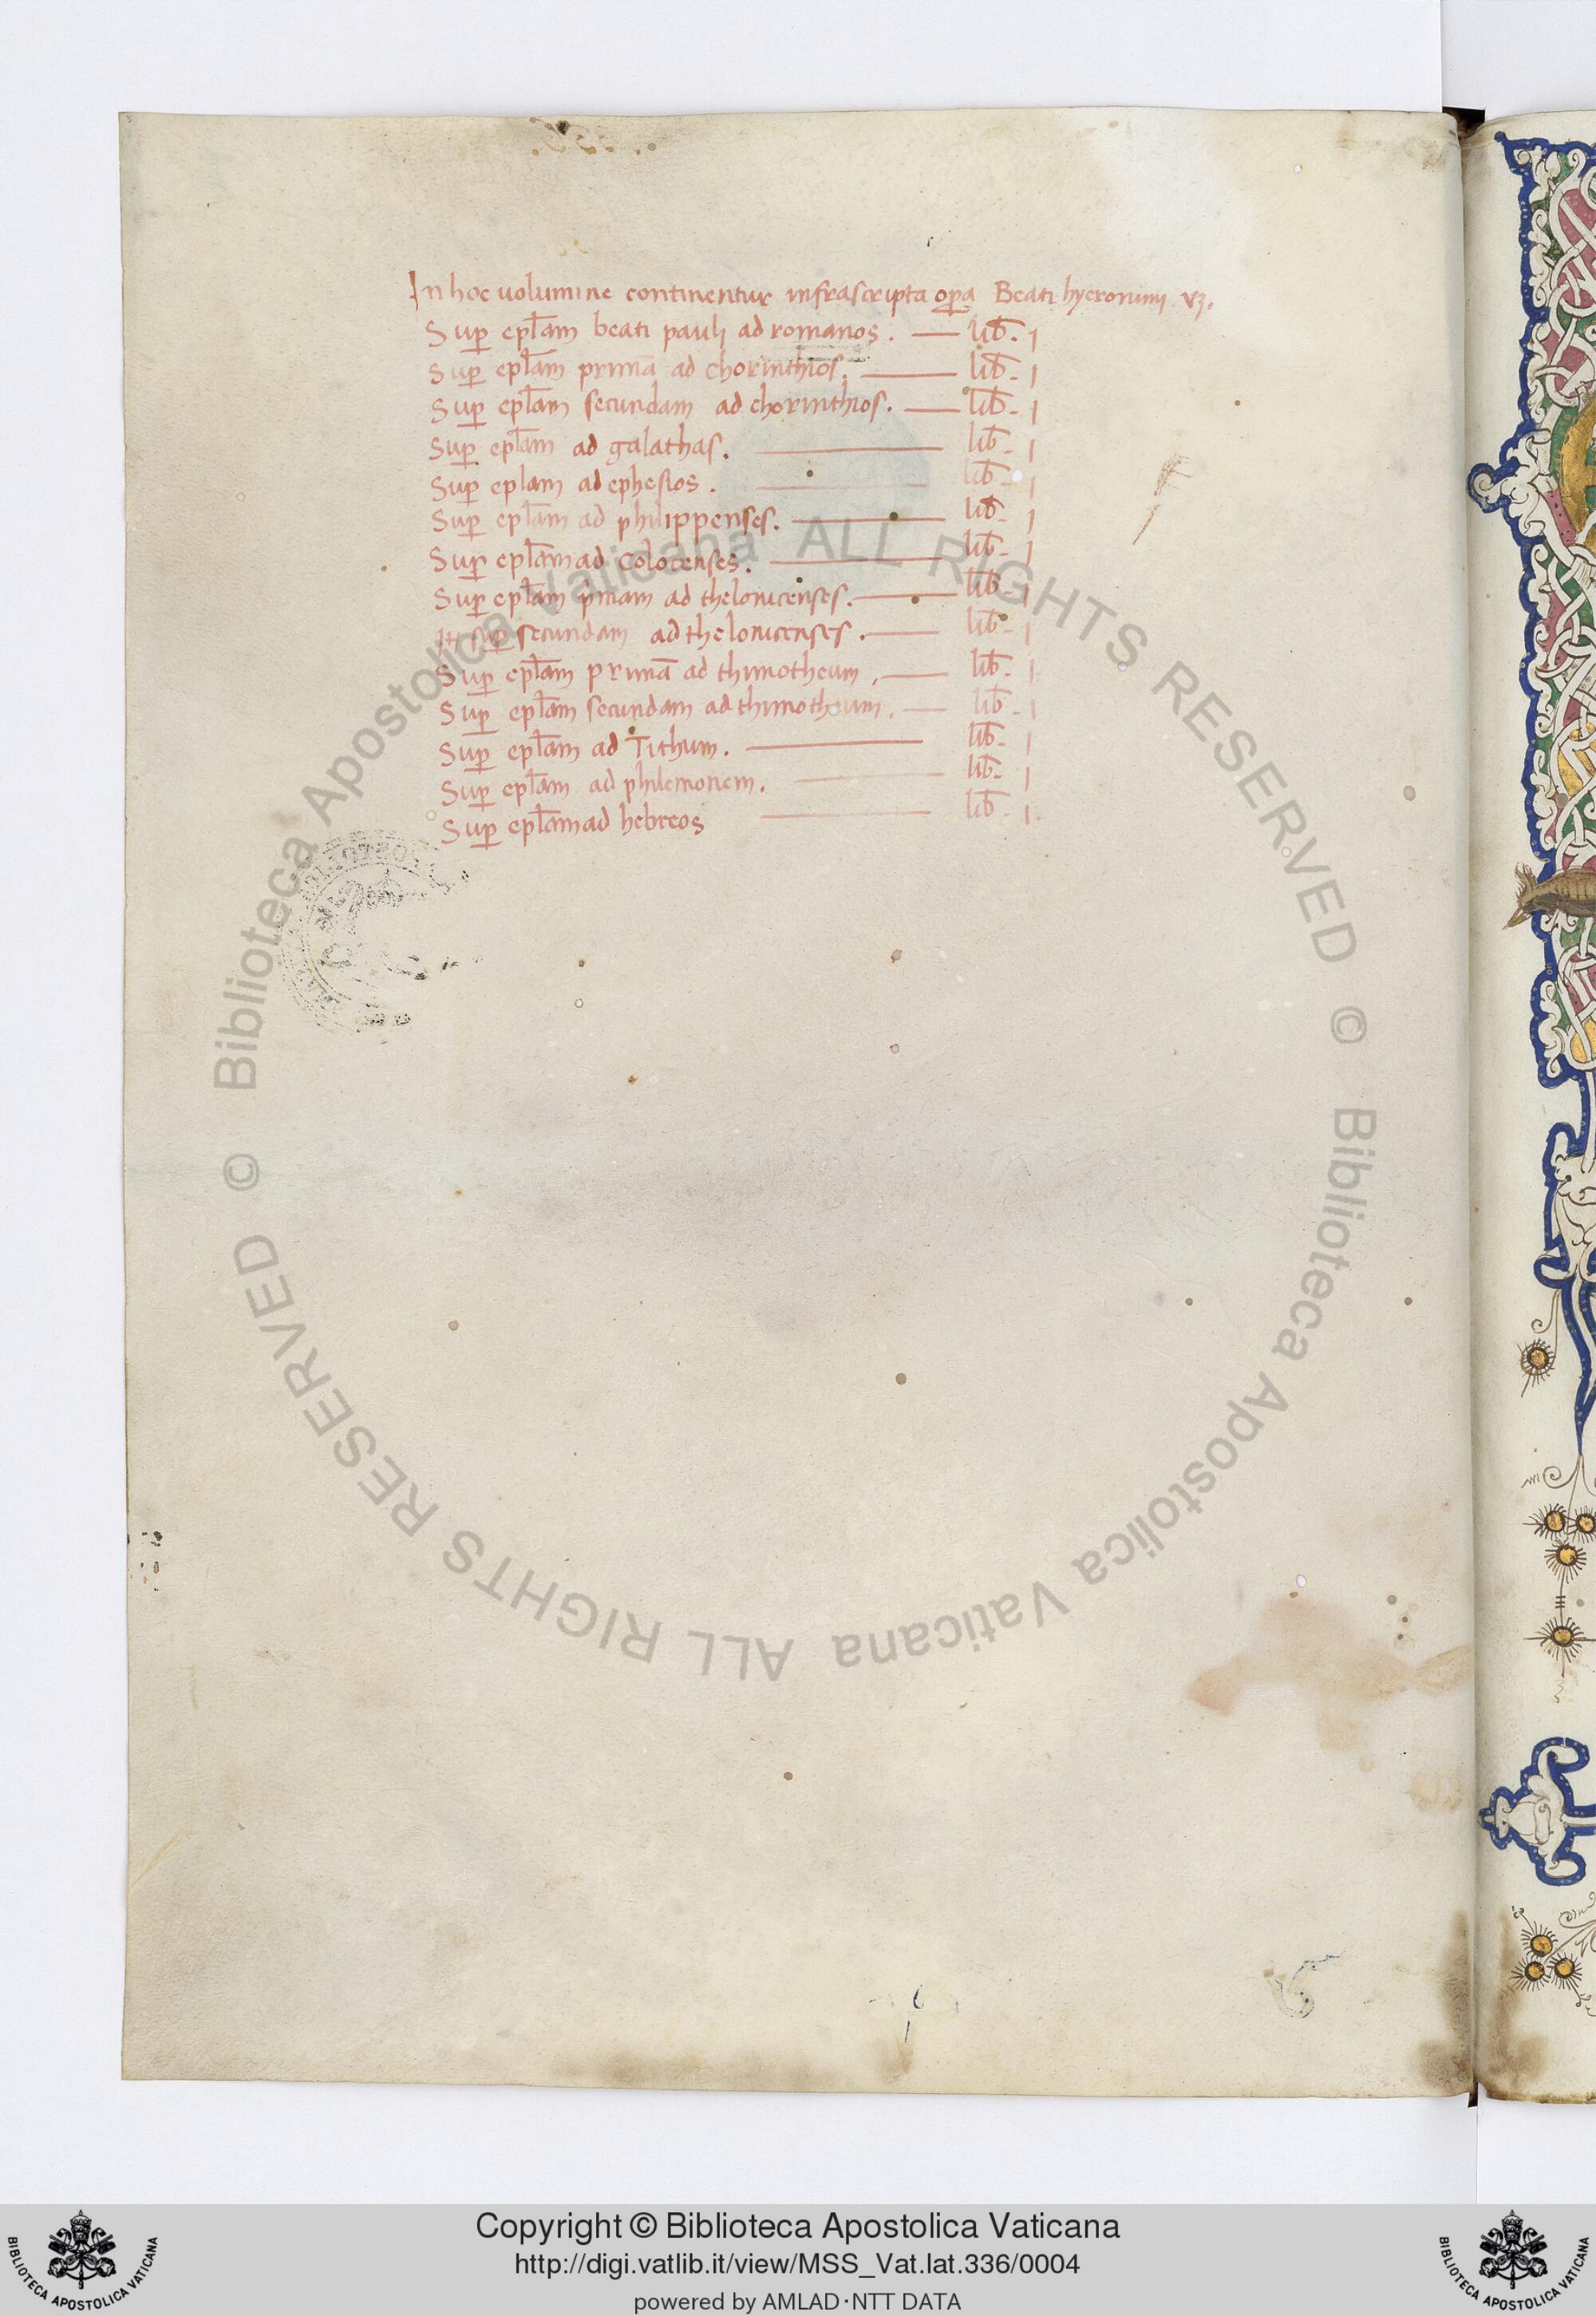 In hoc uolumine continentur infrascripta oꝑa Beati hyeronimi vꝫ.
Suꝑ epl̄am beati pauli ad romanos. — lib̄. 1
Suꝑ epl̄am primā ad chorinthios. — lib̄. 1
Suꝑ epl̄am secundam ad chorinthios. — lib̄. 1
Suꝑ epl̄am ad galathas. — lib̄. 1
Suꝑ eplam ad ephesios. — lib̄. 1
Suꝑ epl̄am ad philippenses. — lib̄. 1
Suꝑ epl̄am ad Colocenses. — lib̄. 1
Suꝑ epl̄am pmam ad thelonicenses. — lib̄. 1
suꝑ secundam ad thelonicenses. — lib̄. 1
Suꝑ epl̄am primā ad thimotheum. — lib̄. 1
Suꝑ epl̄am secundam ad thimotheum. — lib̄. 1
Suꝑ epl̄am ad Tithum. — lib̄. 1
Suꝑ epl̄am ad philemonem. — lib̄. 1
Suꝑ epl̄am ad hebreos — lib̄. 1.
© Biblioteca Apostolica Vaticana ALL RIGHTS RESERVED
© Biblioteca Apostolica Vaticana ALL RIGHTS RESERVED
Copyright © Biblioteca Apostolica Vaticana
http://digi.vatlib.it/view/MSS_Vat.lat.336/0004
powered by AMLAD·NTT DATA
BIBLIOTECA APOSTOLICA VATICANA
BIBLIOTECA APOSTOLICA VATICANA